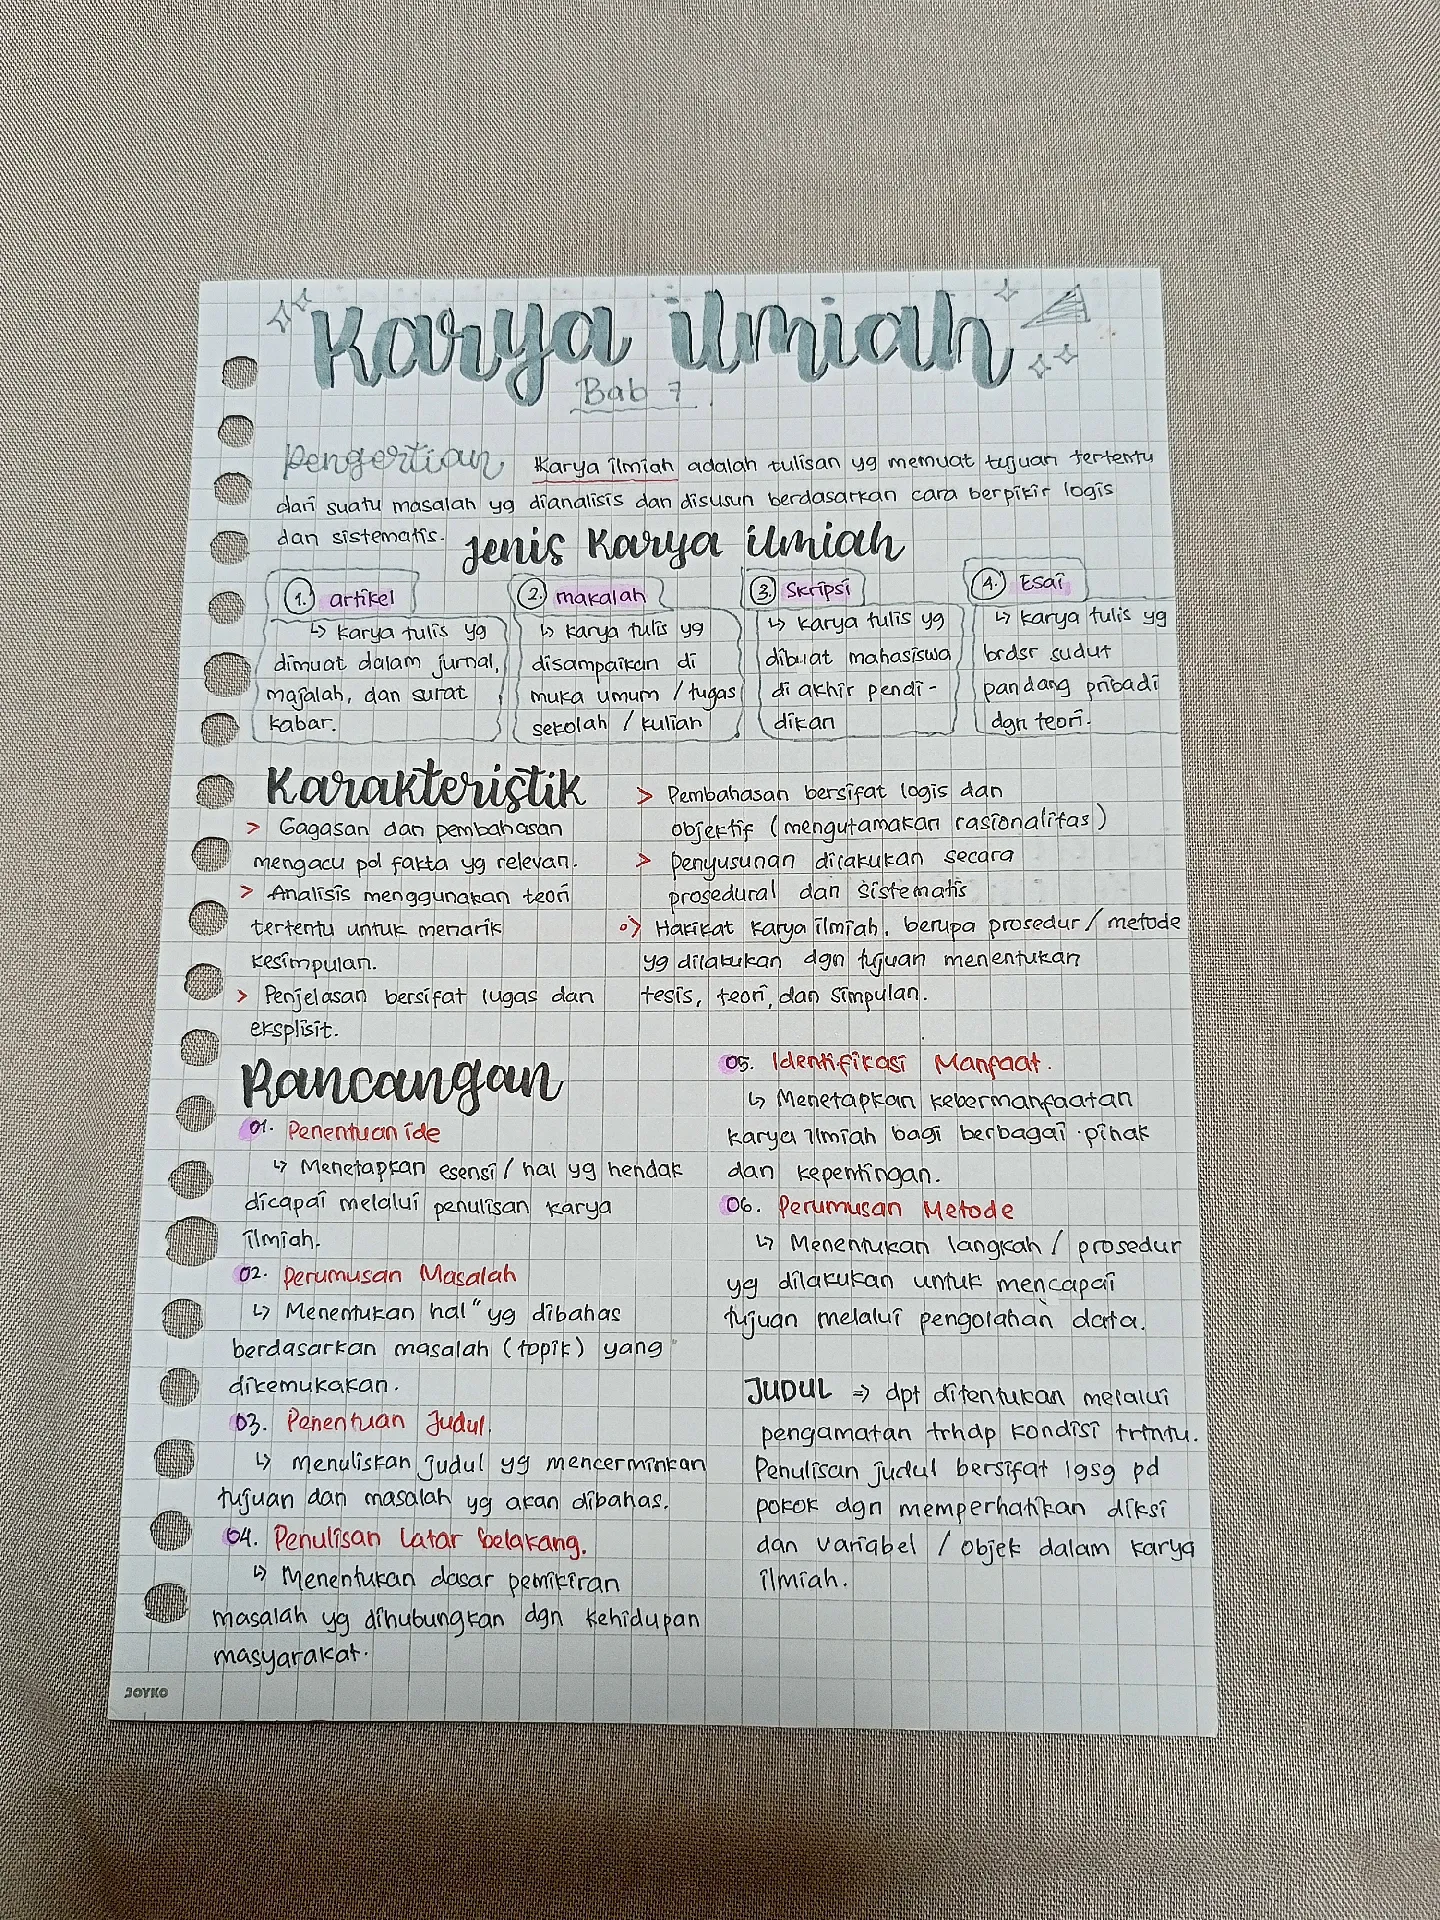 Karya ilmiah
Bab 7
Pengertian Karya ilmiah adalah tulisan yg memuat tujuan tertentu
dari suatu masalah yg dianalisis dan disusun berdasarkan cara berpikir logis
dan sistematis.
Jenis Karya ilmiah
1. artikel
↳ karya tulis yg
dimuat dalam jurnal,
majalah, dan surat
kabar.
2. makalah
↳ karya tulis yg
disampaikan di
muka umum / tugas
sekolah / kuliah
3. Skripsi
↳ karya tulis yg
dibuat mahasiswa
di akhir pendi-
dikan
4. Esai
↳ karya tulis yg
brdsr sudut
pandang pribadi
dgn teori.
Karakteristik
> Gagasan dan pembahasan
mengacu pd fakta yg relevan.
> Analisis menggunakan teori
tertentu untuk menarik
kesimpulan.
> Penjelasan bersifat lugas dan
eksplisit.
> Pembahasan bersifat logis dan
objektif (mengutamakan rasionalitas)
> penyusunan dilakukan secara
prosedural dan sistematis
Hakikat karya ilmiah. berupa prosedur / metode
yg dilakukan dgn tujuan menentukan
tesis, teori, dan simpulan.
Rancangan
01. Penentuan ide
↳ Menetapkan esensi / hal yg hendak
dicapai melalui penulisan karya
ilmiah.
02. perumusan Masalah
↳ Menentukan hal" yg dibahas
berdasarkan masalah (topik) yang
dikemukakan.
03. Penentuan Judul.
↳ menuliskan judul yg mencerminkan
tujuan dan masalah yg akan dibahas.
04. Penulisan Latar belakang.
↳ Menentukan dasar pemikiran
masalah yg dihubungkan dgn kehidupan
masyarakat.
05. Identifikasi Manfaat.
↳ Menetapkan kebermanfaatan
karya ilmiah bagi berbagai pihak
dan kepentingan.
06. Perumusan Metode
↳ Menentukan langkah / prosedur
yg dilakukan untuk mencapai
tujuan melalui pengolahan data.
JUDUL => dpt ditentukan melalui
pengamatan trhdp kondisi trtntu.
Penulisan judul bersifat lgsg pd
pokok dgn memperhatikan diksi
dan variabel / objek dalam karya
ilmiah.
JOYKO